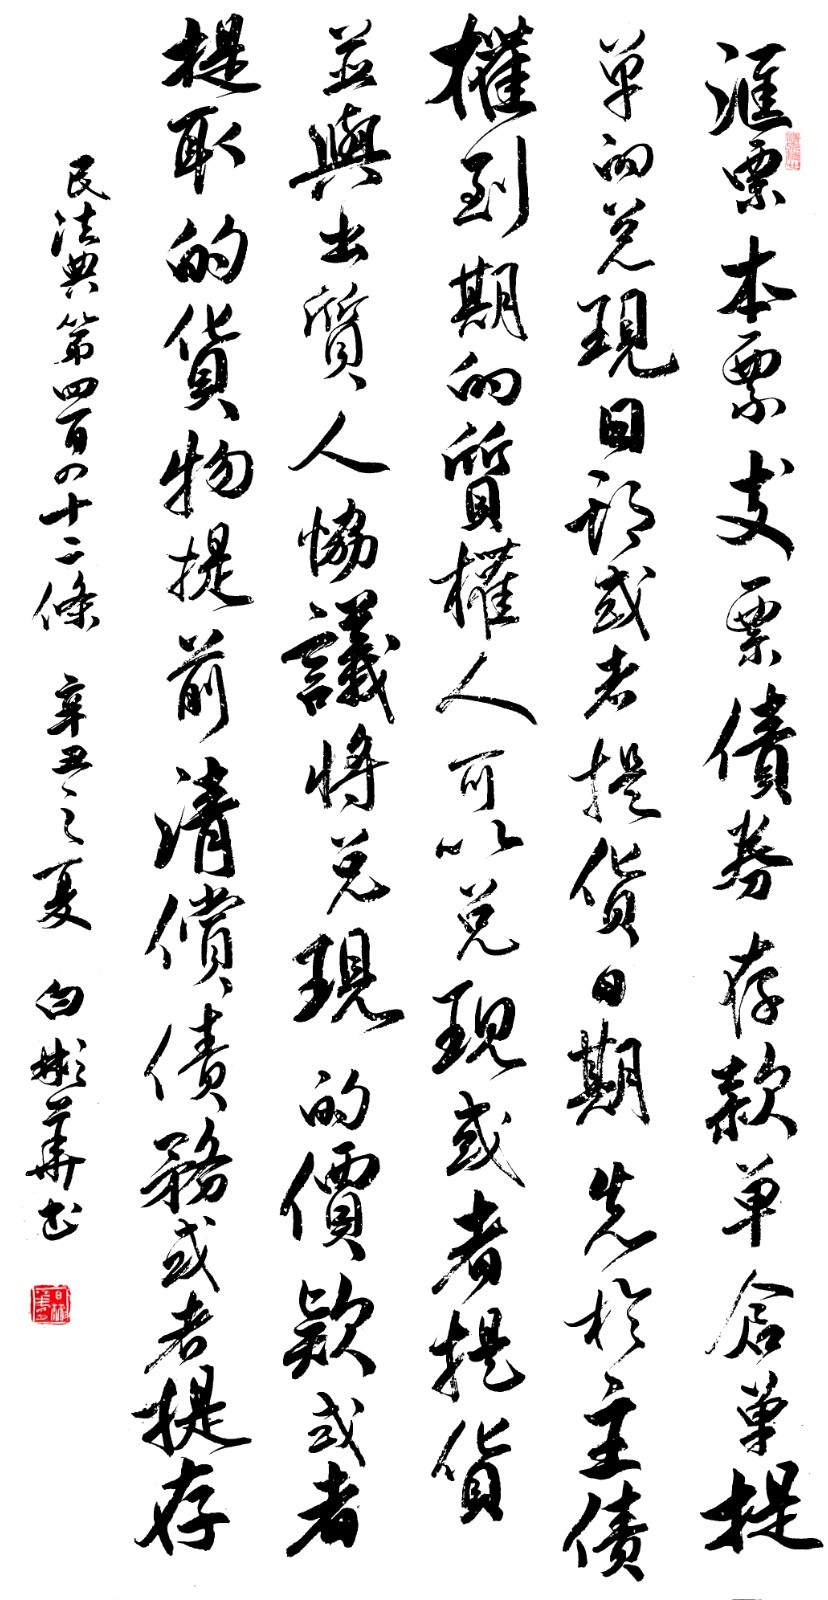 滙票本票支票債券存款单倉单提
单的兑現日期或者提貨日期先於主債
權到期的質權人可以兑現或者提貨
並與出質人協議將兑現的價款或者
提取的貨物提前清償債務或者提存
民法典第四百四十二條 辛丑之夏 白彬華书